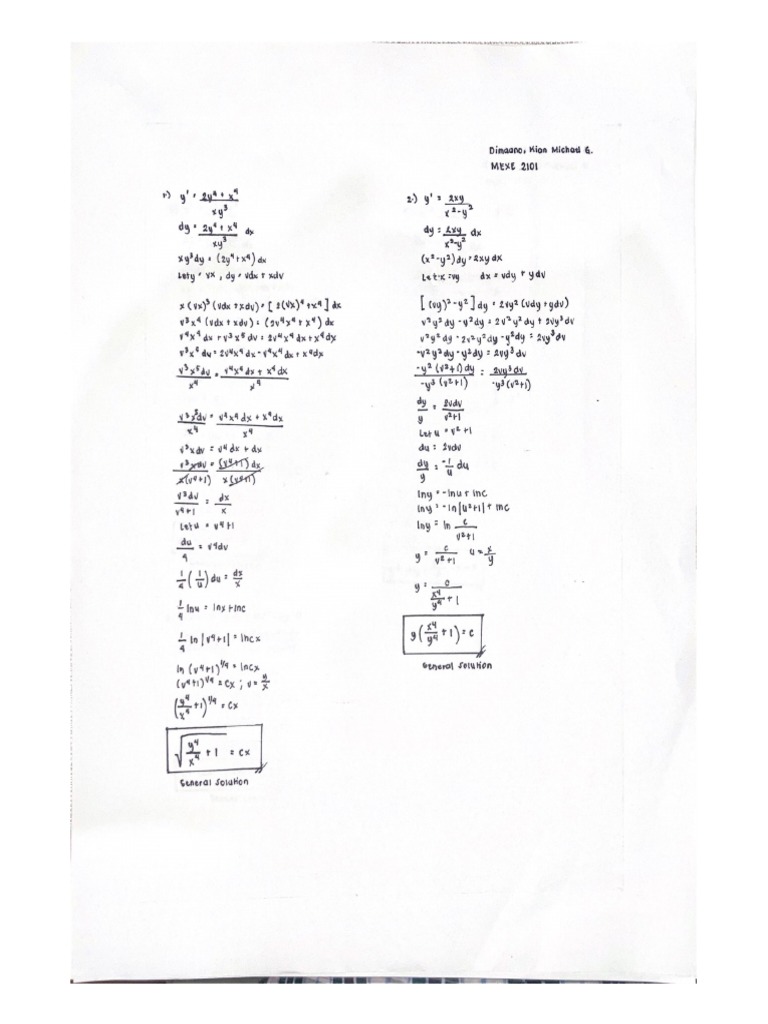 Dimaano, Kian Michael G.
MEXE 2101
1.) y' = (2y⁴ + x⁴)/(xy³)
dy = (2y⁴ + x⁴)/(xy³) dx
xy³dy = (2y⁴ + x⁴) dx
Let y = vx, dy = vdx + xdv
x(vx)³ (vdx + xdv) = [2(vx)⁴ + x⁴] dx
v³x⁴ (vdx + xdv) = (2v⁴x⁴ + x⁴) dx
v⁴x⁴dx + v³x⁵dv = 2v⁴x⁴dx + x⁴dx
v³x⁵dv = 2v⁴x⁴dx - v⁴x⁴dx + x⁴dx
(v³x⁵dv)/x⁴ = (v⁴x⁴dx + x⁴dx)/x⁴
(v³x⁵dv)/x⁴ = (v⁴x⁴dx + x⁴dx)/x⁴
v³xdv = v⁴dx + dx
(v³xdv)/(x(v⁴+1)) = ((v⁴+1)dx)/(x(v⁴+1))
(v³dv)/(v⁴+1) = dx/x
Let u = v⁴+1
du/4 = v⁴dv
1/4 (1/u) du = dx/x
1/4 lnu = lnx + lnc
1/4 ln|v⁴+1| = lncx
ln (v⁴+1)^(1/4) = lncx
(v⁴+1)^(1/4) = cx ; v = y/x
(y⁴/x⁴ + 1)^(1/4) = cx
√(y⁴/x⁴ + 1) = cx
General Solution
2.) y' = 2xy/(x²-y²)
dy = 2xy/(x²-y²) dx
(x²-y²)dy = 2xydx
Let x = vy dx = vdy + ydv
[(vy)² - y²] dy = 2vy² (vdy + ydv)
v²y²dy - y²dy = 2v²y²dy + 2vy³dv
v²y²dy - 2v²y²dy - y²dy = 2vy³dv
-v²y²dy - y²dy = 2vy³dv
(-y²(v²+1)dy)/(-y³(v²+1)) = (2vy³dv)/(-y³(v²+1))
dy/y = 2vdv/(v²+1)
Let u = v²+1
du = 2vdv
dy/y = -1/u du
lny = -lnu + lnc
lny = -ln|u²+1| + lnc
lny = ln c/(v²+1)
y = c/(v²+1) u = x/y
y = c/(x⁴/y⁴ + 1)
y(x⁴/y⁴ + 1) = c
General Solution